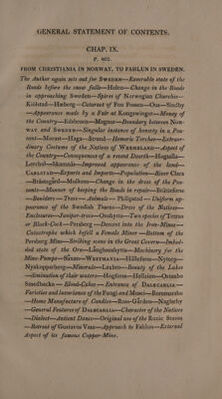 GENERAL STATEMENT OF CONTENTS.
CHAP. IX.
P. 202.
FROM CHRISTIANIA, IN NORWAY, TO FAHLUN IN SWEDEN.
The Author again sets out for SWEDEN—Execrable state of the
Roads before the snow falls—Holen—Change in the Roads
in approaching Sweden—Spires of Norwegian Churches—
Kiölstad—Haeberg—Cataract of Fon Fossen—Ous—Sindby
—Appearance made by a Fair at Kongswinger—Money of
the Country—Edsbroen—Magnor—Boundary between NOR-
WAY and SWEDEN—Singular instance of honesty in a Pea-
sant—Morast—Haga—Strand—Homeric Torches—Extraor-
dinary Costume of the Natives of WERMELAND—Aspect of
the Country—Consequences of a recent Dearth—Hogsalla—
Lerchil—Skamnäs—Improved appearance of the land—
CARLSTAD—Exports and Imports—Population—River Clara
—Brästegled—Malkom—Change in the dress of the Pea-
sants—Manner of keeping the Roads in repair—Brättefors
—Boulders—Trees—Animals—Philipstad—Uniform ap-
pearance of the Swedish Towns—Dress of the Natives—
Enclosures—Juniper-trees—Onshytta—Two species of Tetrao
or Black-Cock—Persberg—Descent into the Iron-Mines—
Catastrophe which befell a Female Miner—Bottom of the
Persberg Mine—Striking scene in the Great Cavern—Imbed-
ded state of the Ore—Långbanshytta—Machinery for the
Mine-Pumps—Saxån—WESTMANIA—Hällefors—Nyttorp—
Nyakopparberg—Minerals—Laxbro—Beauty of the Lakes
—diminution of their waters—Hogforss—Hellsion—Ostanbo
Smedbacka—Blood-Cakes—Entrance of DALECARLIA—
Varieties and luxuriance of the Fungi and Musci—Rommansbo
—Home Manufacture of Candles—Ross-Gården—Naglarby
—General Features of DALECARLIA—Character of the Natives
—Dialect—Antient Dance—Original use of the Runic Staves
—Retreat of Gustavus Vasa—Approach to Fahlun—External
Aspect of its famous Copper-Mine.